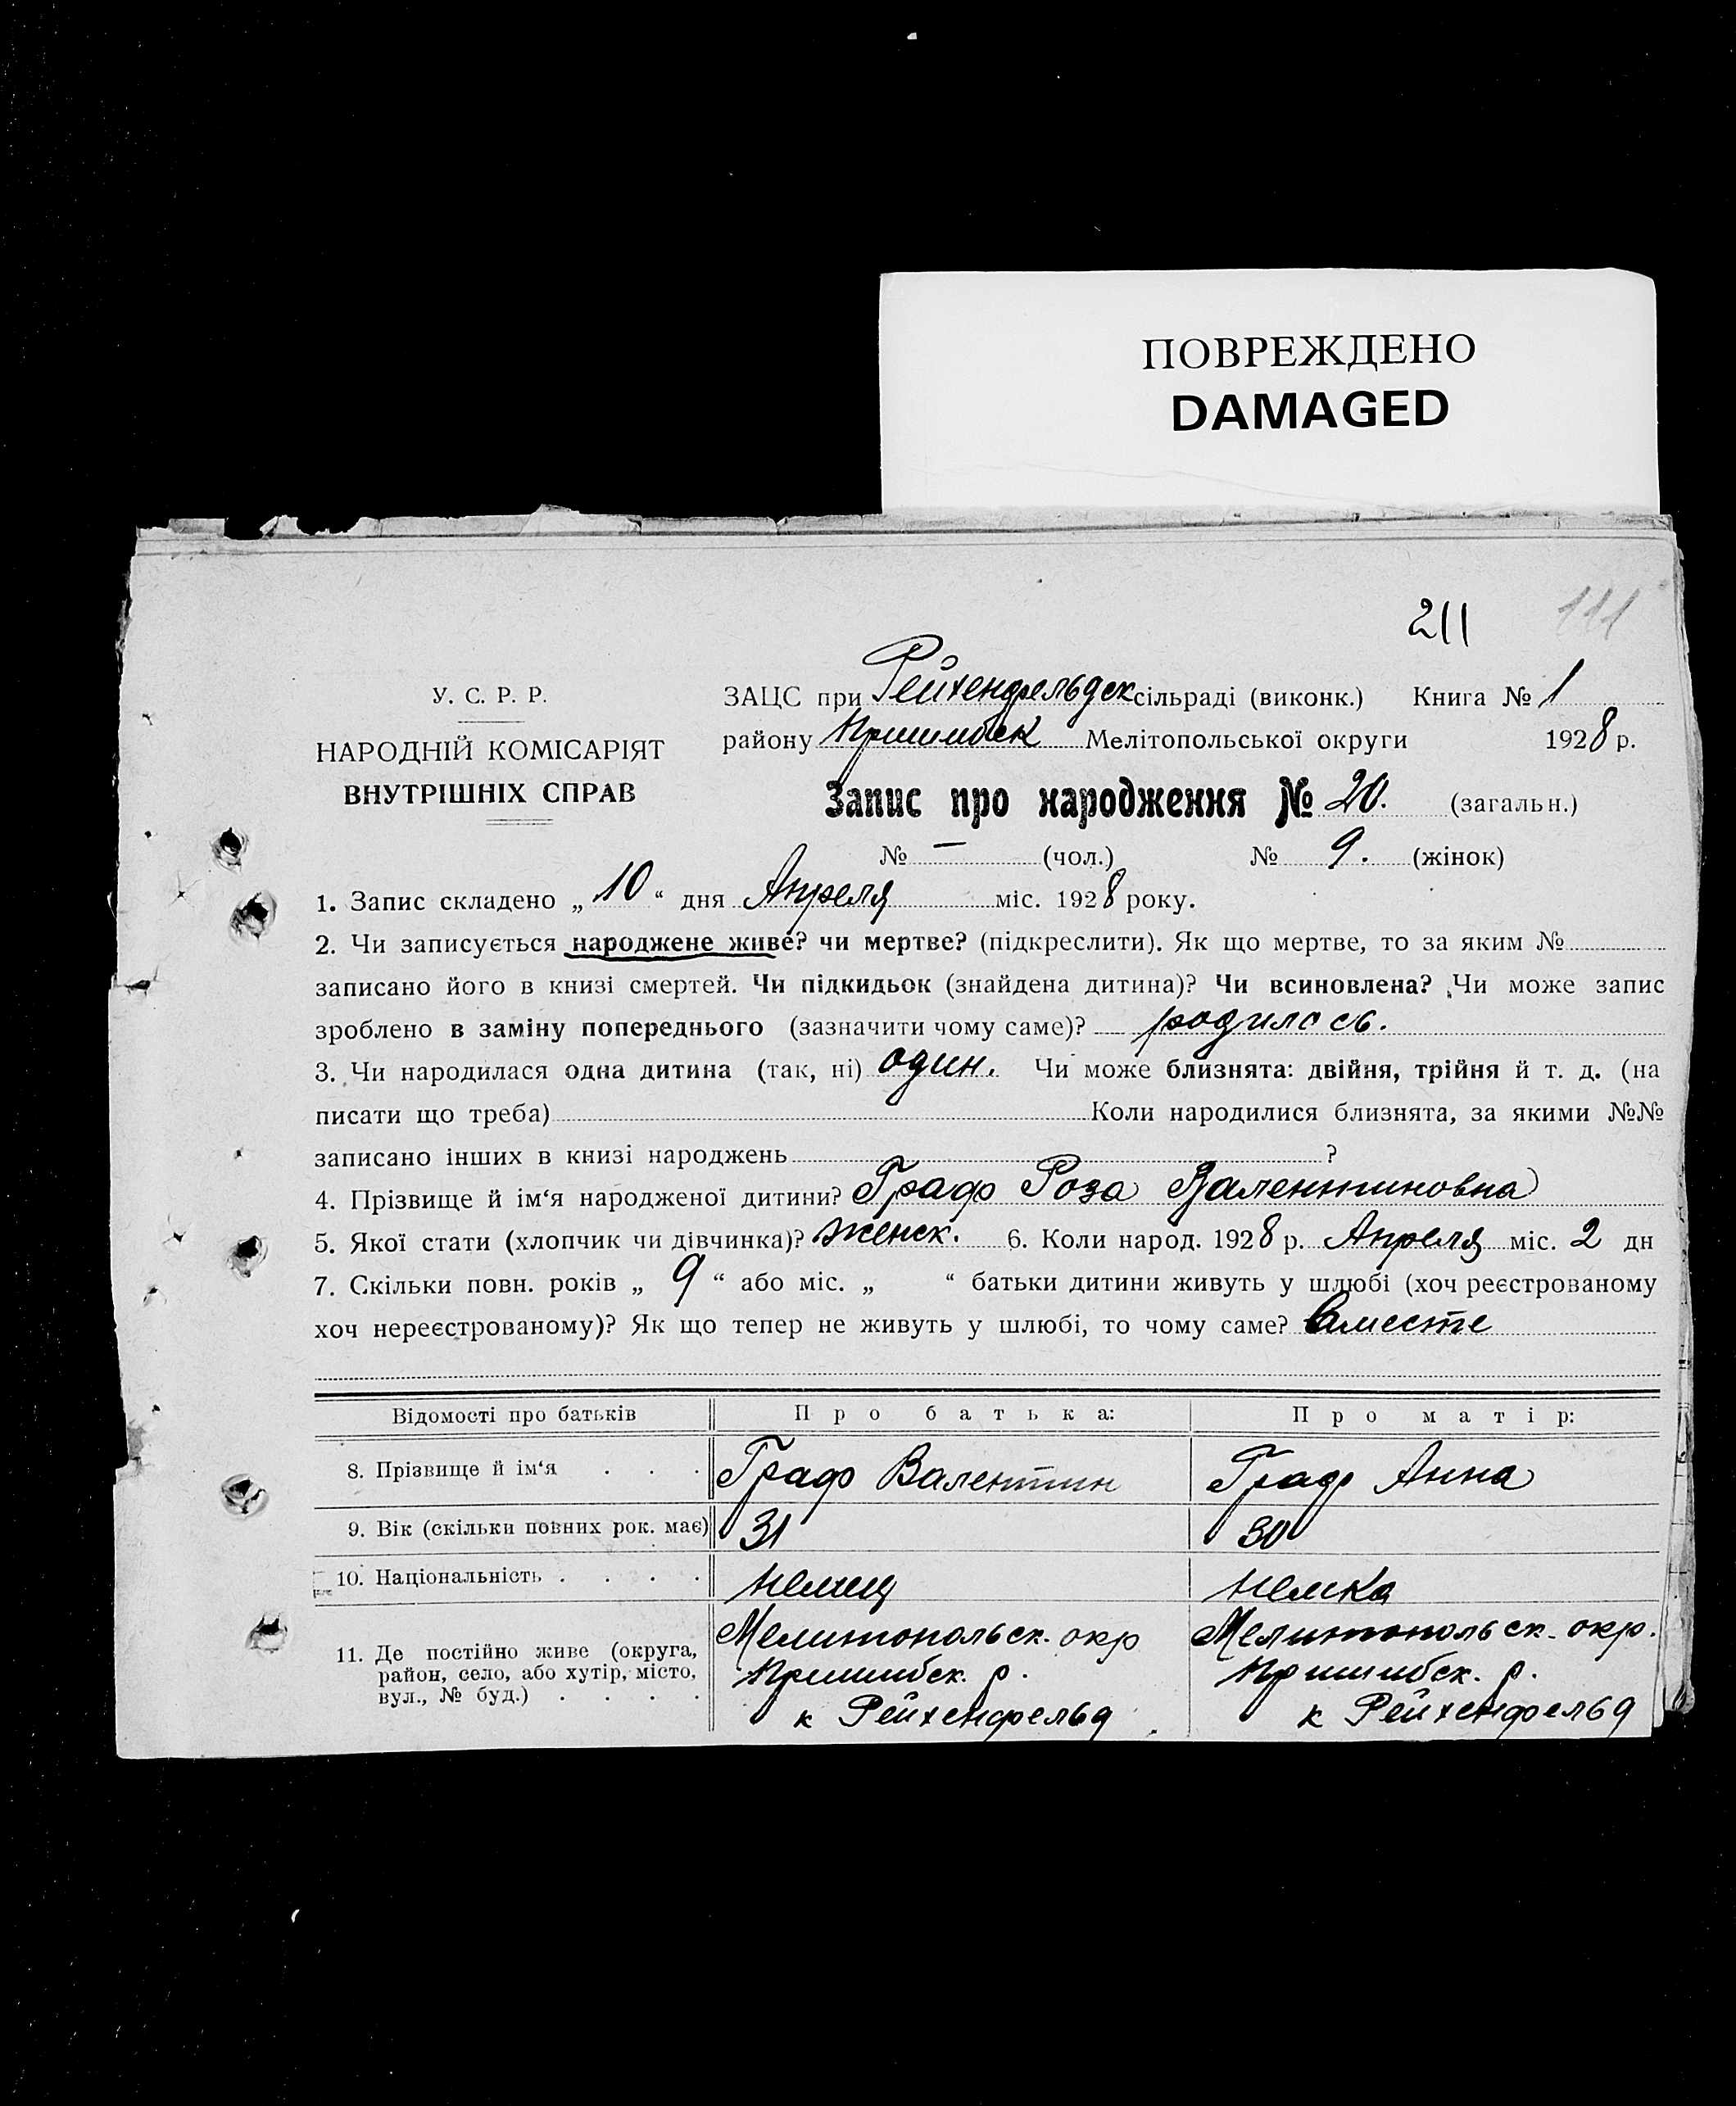 ПОВРЕЖДЕНО
DAMAGED
211 111
У. С. Р. Р.
НАРОДНІЙ КОМІСАРІЯТ
ВНУТРІШНІХ СПРАВ
ЗАЦС при Рейхенфельдск сільраді (виконк.) Книга № 1
району Пришибск Мелітопольської округи 1928 р.
Запис про народження № 20. (загальн.)
№ — (чол.) № 9. (жінок)
1. Запис складено „ 10 “ дня Апреля міс. 1928 року.
2. Чи записується народжене живе? чи мертве? (підкреслити). Як що мертве, то за яким №
записано його в книзі смертей. Чи підкидьок (знайдена дитина)? Чи всиновлена? Чи може запис
зроблено в заміну попереднього (зазначити чому саме)? родилось.
3. Чи народилася одна дитина (так, ні) один. Чи може близнята: двійня, трійня й т. д. (на
писати що треба) Коли народилися близнята, за якими №№
записано інших в книзі народжень ?
4. Прізвище й ім‘я народженої дитини? Граф Роза Валентиновна
5. Якої стати (хлопчик чи дівчинка)? женск. 6. Коли народ. 1928 р. Апреля міс. 2 дн
7. Скільки повн. років „ 9 “ або міс. „ “ батьки дитини живуть у шлюбі (хоч реєстрованому
хоч нереєстрованому)? Як що тепер не живуть у шлюбі, то чому саме? Вместе
Відомості про батьків Про батька: Про матір:
8. Прізвище й ім‘я . . . Граф Валентин Граф Анна
9. Вік (скільки повних рок. має) 31 30
10. Національність . . . . немец немка
11. Де постійно живе (округа, район, село, або хутір, місто, вул., № буд.) . . . .
Мелитопольск. окр Мелитопольск. окр.
Пришибск. р. Пришибск. р.
к Рейхенфельд к Рейхенфельд